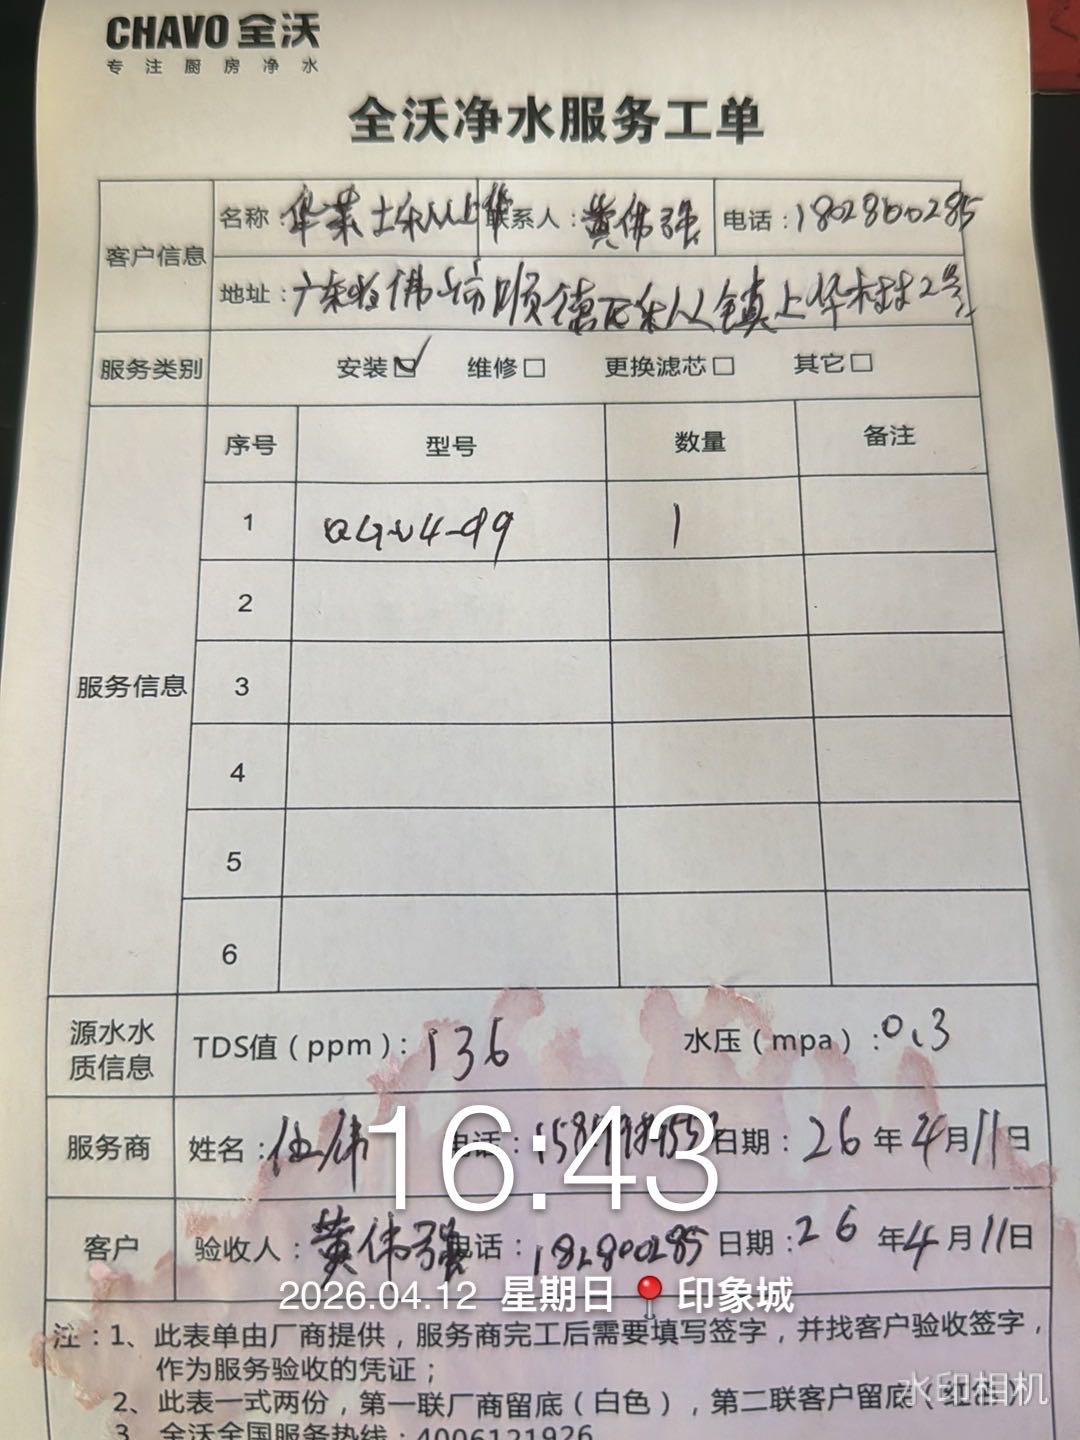 CHAVO 全沃
专注厨房净水
全沃净水服务工单
客户信息
名称： 联系人：黄伟强 电话：18028600285
地址：广东省佛山市顺德区乐从镇上华村2号
服务类别 安装 维修 更换滤芯 其它
服务信息
序号 型号 数量 备注
1 1
2
3
4
5
6
源水水质信息
TDS值（ppm）：136 水压（mpa）：0.3
服务商 姓名：伍伟 电话： 日期：26年4月11日
客户 验收人：黄伟强 电话： 日期：26年4月11日
16:43
2026.04.12 星期日 印象城
注：1、此表单由厂商提供，服务商完工后需要填写签字，并找客户验收签字，
作为服务验收的凭证；
2、此表一式两份，第一联厂商留底（白色），第二联客户留底（红色）
3、全沃全国服务热线：4006121926
水印相机